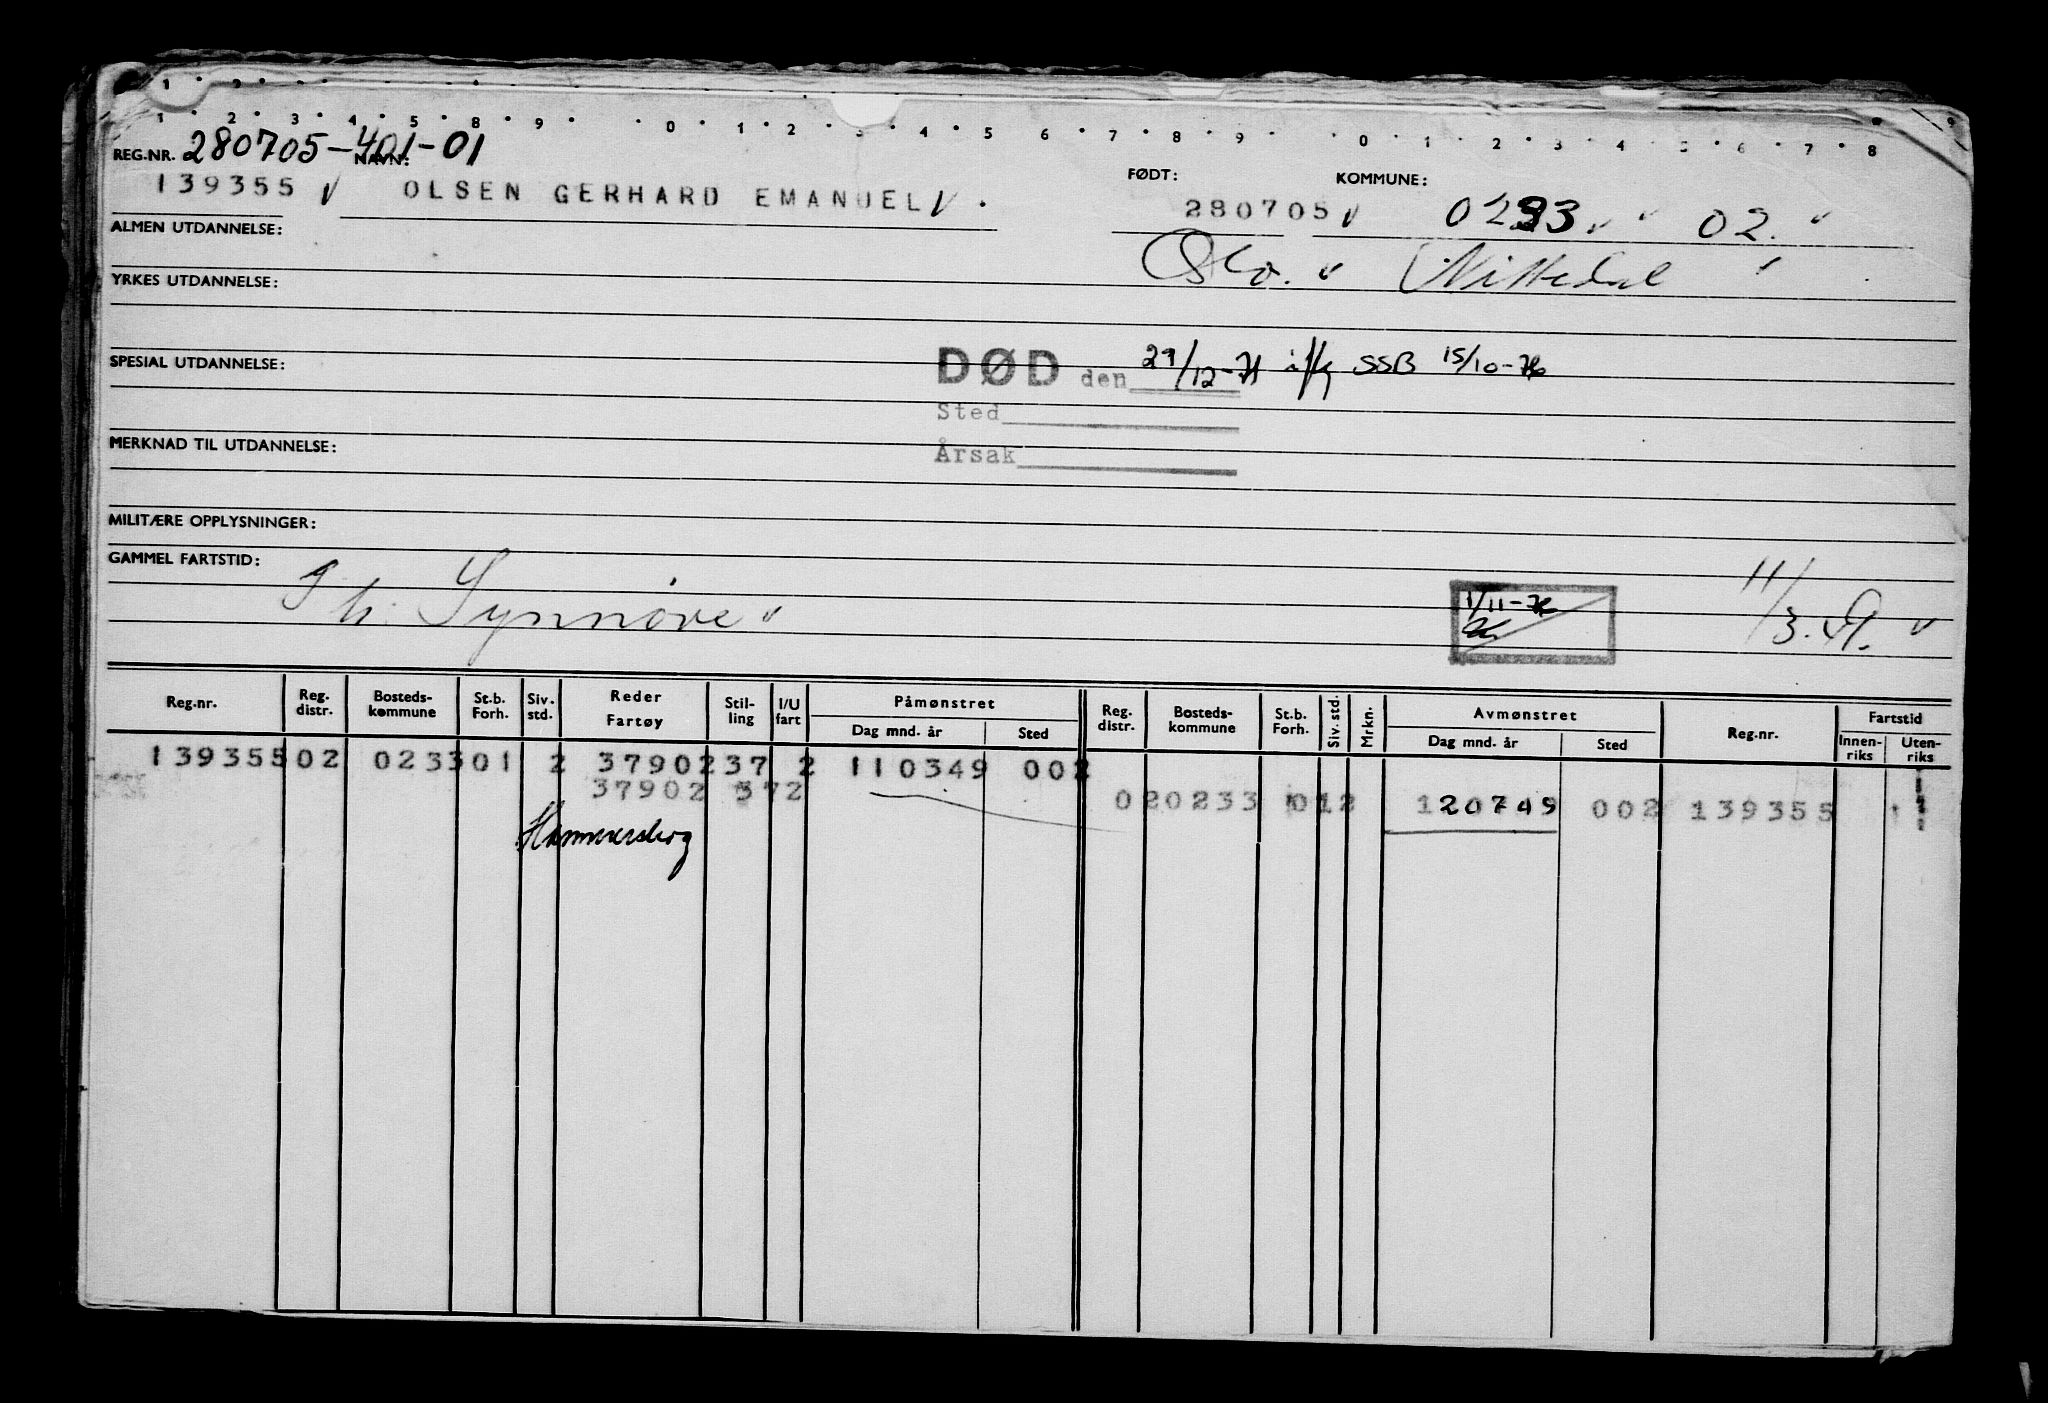 1 2 3 4 5 8 9 0 1 2 3 4 5 6 7 8 9 0 1 2 3 4 5 6 7 8
REG.NR. 280705-401-01 NAVN: FØDT: KOMMUNE:
139355 OLSEN GERHARD EMANUEL 280705 0233 02.
ALMEN UTDANNELSE: Oslo. Nittedal
YRKES UTDANNELSE:
SPESIAL UTDANNELSE: DØD den 29/12-71 iflg SSB 15/10-76
Sted
MERKNAD TIL UTDANNELSE: Årsak
MILITÆRE OPPLYSNINGER:
GAMMEL FARTSTID:
Th. Synnøve 1/11-76 11/3.49.
Reg.nr. Reg. distr. Bosteds-kommune St.b. Forh. Siv. std. Reder Fartøy Stil-ling I/U fart Påmønstret Reg. distr. Bosteds-kommune St.b. Forh. Siv. std. Mrkn. Avmønstret Reg.nr. Fartstid
Dag mnd. år Sted Dag mnd. år Sted Innen-riks Uten-riks
139355 02 0233 01 2 37902 37 2 110349 002
37902 37 2 02 0233 01 2 120749 002 139355
Hammersborg